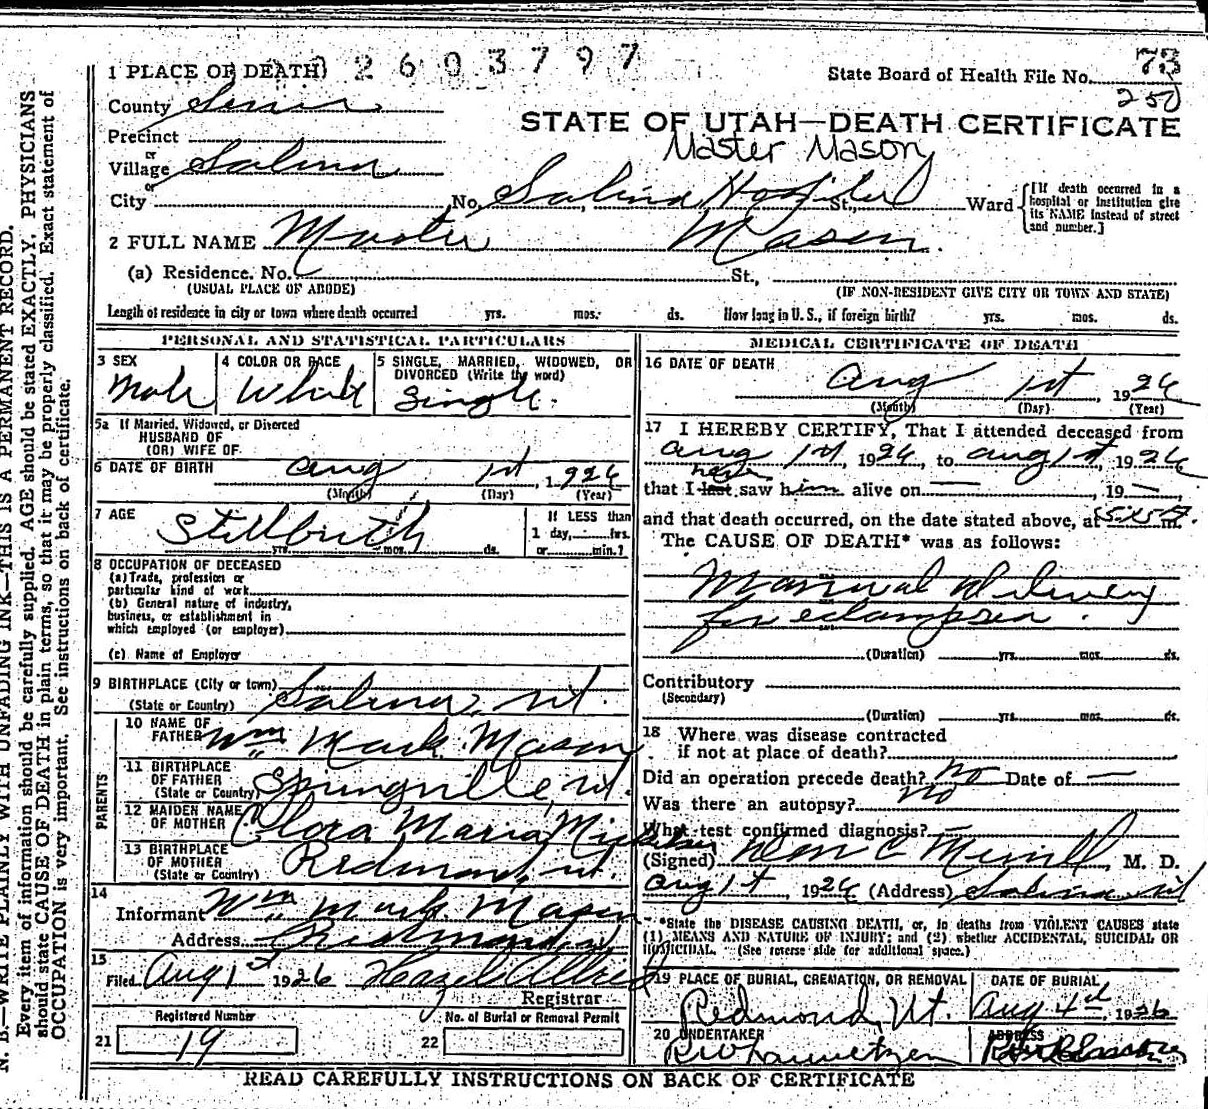 2603797
1 PLACE OF DEATH
State Board of Health File No. 73
250
County Sevier
STATE OF UTAH—DEATH CERTIFICATE
Precinct
Master Mason
or
Village Salina
or
City No. Salina Hospital St., Ward
[If death occurred in a
hospital or institution give
its NAME instead of street
and number.]
2 FULL NAME Master Mason.
(a) Residence. No. St.,
(USUAL PLACE OF ABODE) (IF NON-RESIDENT GIVE CITY OR TOWN AND STATE)
Length of residence in city or town where death occurred yrs. mos. ds. How long in U. S., if foreign birth? yrs. mos. ds.
PERSONAL AND STATISTICAL PARTICULARS
3 SEX 4 COLOR OR RACE 5 SINGLE, MARRIED, WIDOWED, OR
DIVORCED (Write the word)
Male White Single.
5a If Married, Widowed, or Divorced
HUSBAND OF
(OR) WIFE OF
6 DATE OF BIRTH Aug 1st, 1926
(Month) (Day) (Year)
7 AGE If LESS than
Stillbirth 1 day, hrs.
yrs. mos. ds. or min.?
8 OCCUPATION OF DECEASED
(a) Trade, profession or
particular kind of work
(b) General nature of industry,
business, or establishment in
which employed (or employer)
(c) Name of Employer
9 BIRTHPLACE (City or town)
(State or Country) Salina, Ut.
PARENTS
10 NAME OF
FATHER Wm Mark Mason
11 BIRTHPLACE
OF FATHER
(State or Country) Springville, Ut.
12 MAIDEN NAME
OF MOTHER Clora Maria Mickelsen
13 BIRTHPLACE
OF MOTHER
(State or Country) Redmond, Ut.
14
Informant Wm Mark Mason
Address Redmond, Ut
15
Filed Aug 1st 1926 Hazel Allred
Registrar
Registered Number No. of Burial or Removal Permit
21 19 22
MEDICAL CERTIFICATE OF DEATH
16 DATE OF DEATH
Aug 1st, 1926
(Month) (Day) (Year)
17 I HEREBY CERTIFY, That I attended deceased from
Aug 1st, 1926, to Aug 1st, 1926
that I last saw him alive on —, 19—,
and that death occurred, on the date stated above, at m.
The CAUSE OF DEATH* was as follows:
Manual delivery
for eclampsia.
(Duration) yrs. mos. ds.
Contributory
(Secondary)
(Duration) yrs. mos. ds.
18 Where was disease contracted
if not at place of death?
Did an operation precede death? no Date of —
Was there an autopsy? no
What test confirmed diagnosis? —
(Signed) C Merrill, M. D.
Aug 1st, 1926 (Address) Salina, Ut
*State the DISEASE CAUSING DEATH, or, in deaths from VIOLENT CAUSES state
(1) MEANS AND NATURE OF INJURY; and (2) whether ACCIDENTAL, SUICIDAL OR
HOMICIDAL. (See reverse side for additional space.)
19 PLACE OF BURIAL, CREMATION, OR REMOVAL DATE OF BURIAL
Redmond, Ut. Aug 4, 1926
20 UNDERTAKER ADDRESS
READ CAREFULLY INSTRUCTIONS ON BACK OF CERTIFICATE
N. B.—WRITE PLAINLY WITH UNFADING INK—THIS IS A PERMANENT RECORD.
Every item of information should be carefully supplied. AGE should be stated EXACTLY. PHYSICIANS
should state CAUSE OF DEATH in plain terms, so that it may be properly classified. Exact statement of
OCCUPATION is very important. See instructions on back of certificate.